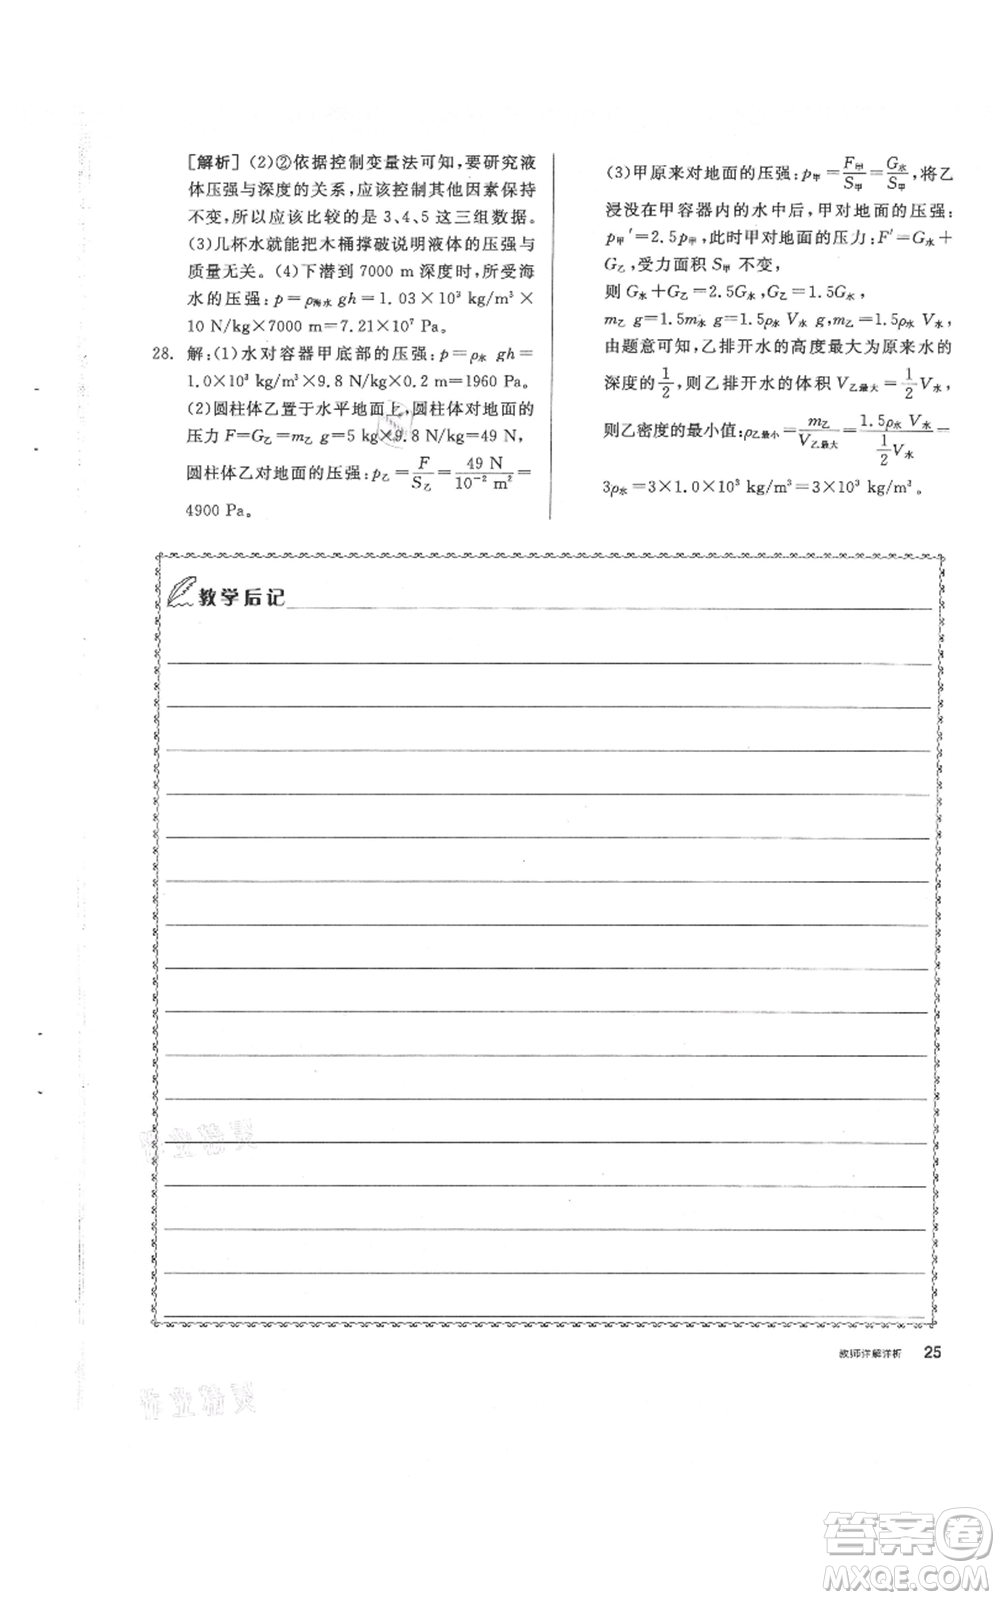 [解析](2)②依据控制变量法可知,要研究液
体压强与深度的关系,应该控制其他因素保持
不变,所以应该比较的是 3、4、5 这三组数据。
(3)几杯水就能把木桶撑破说明液体的压强与
质量无关。(4)下潜到 7000 m 深度时,所受海
水的压强:p=ρ海水 gh=1.03×10³ kg/m³×
10 N/kg×7000 m=7.21×10⁷ Pa。
28. 解:(1)水对容器甲底部的压强:p=ρ水 gh=
1.0×10³ kg/m³×9.8 N/kg×0.2 m=1960 Pa。
(2)圆柱体乙置于水平地面上,圆柱体对地面的
压力 F=G乙=m乙 g=5 kg×9.8 N/kg=49 N,
圆柱体乙对地面的压强:p乙=F/S乙=49 N/10⁻² m²=
4900 Pa。
(3)甲原来对地面的压强:p甲=F甲/S甲=G水/S甲,将乙
浸没在甲容器内的水中后,甲对地面的压强:
p甲′=2.5p甲,此时甲对地面的压力:F′=G水+
G乙,受力面积 S甲 不变,
则 G水+G乙=2.5G水,G乙=1.5G水,
m乙 g=1.5m水 g=1.5ρ水 V水 g,m乙=1.5ρ水 V水,
由题意可知,乙排开水的高度最大为原来水的
深度的1/2,则乙排开水的体积 V乙最大=1/2V水,
则乙密度的最小值:ρ乙最小=m乙/V乙最大=1.5ρ水 V水/(1/2 V水)=
3ρ水=3×1.0×10³ kg/m³=3×10³ kg/m³。
教学后记
教师详解详析 25
答案卷
MXQE.COM